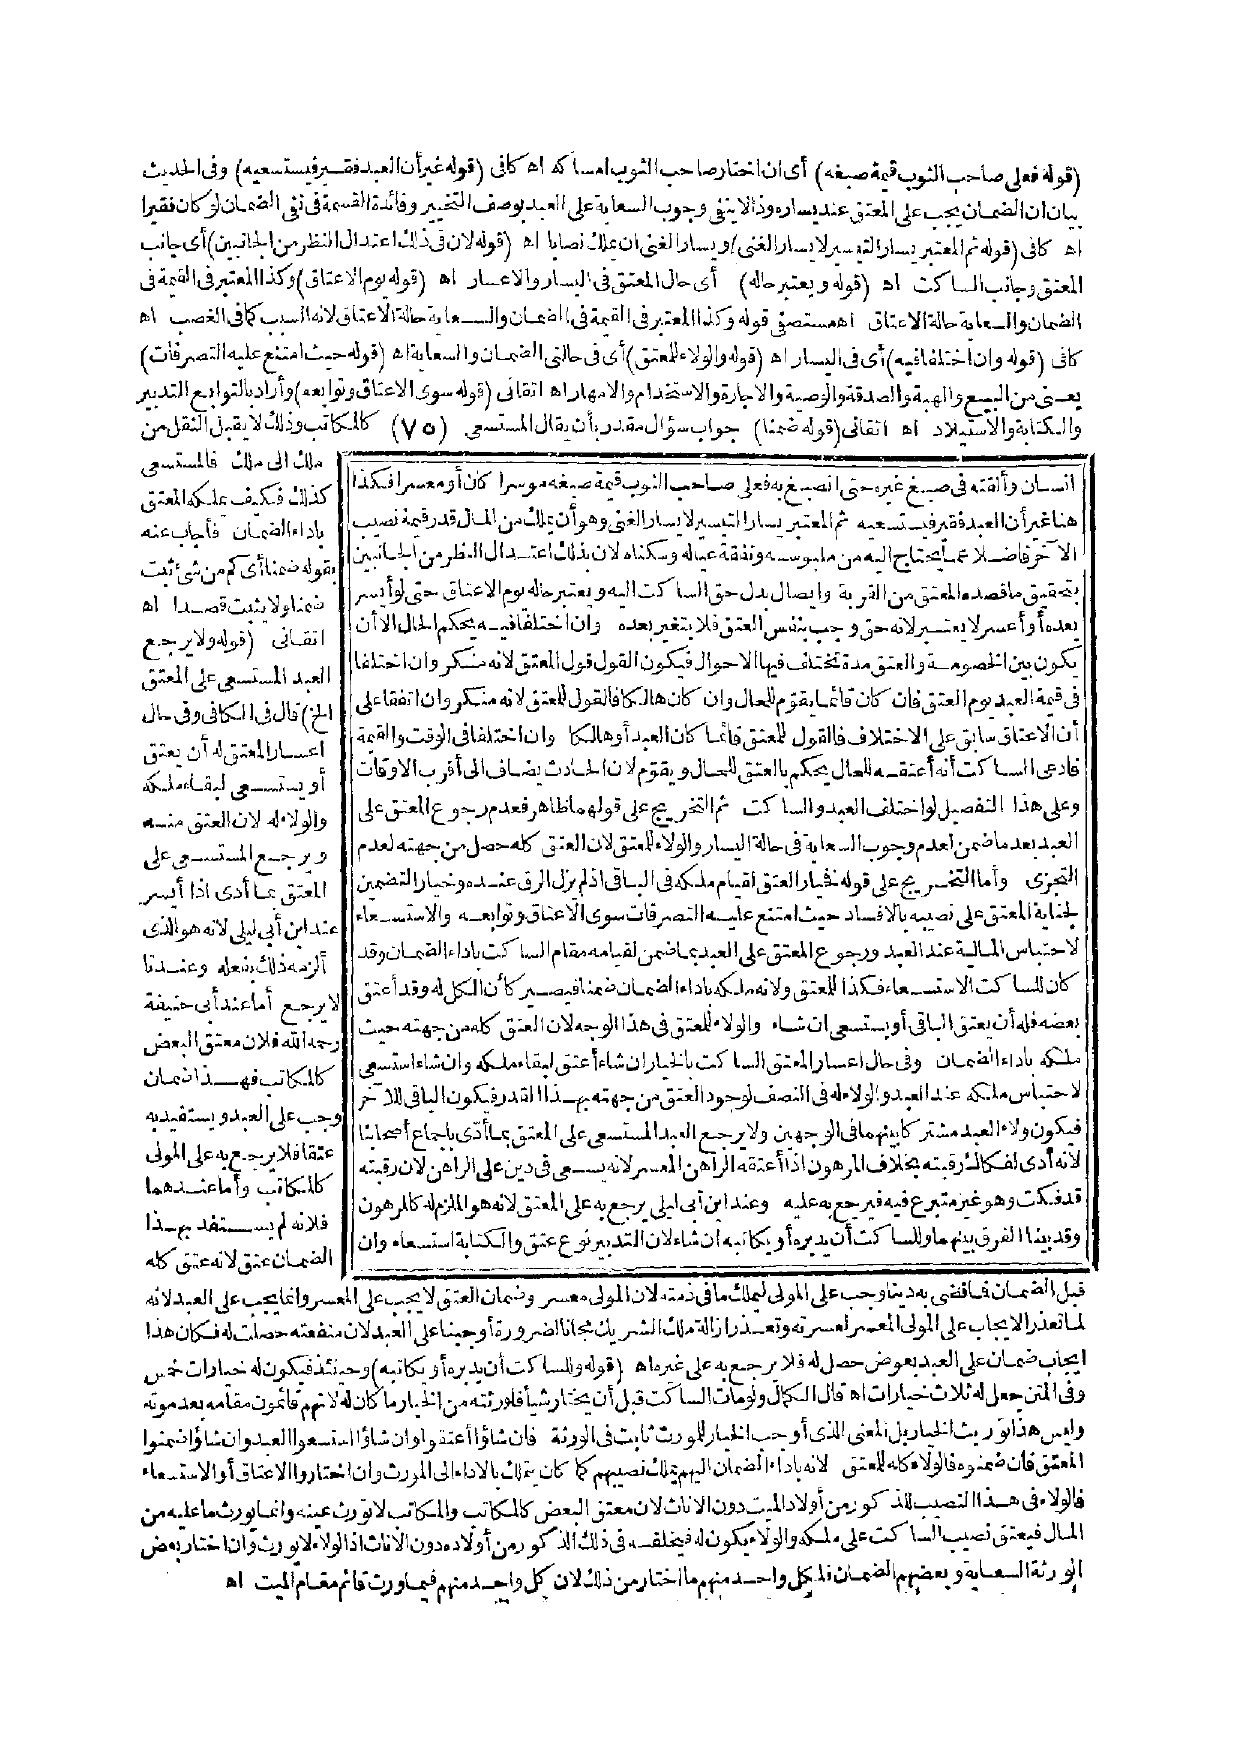 (قوله فعلى صاحب الثوب قيمة صبغه) أى ان اختار صاحب الثوب امساكه اه كافى (قوله غير أن العبد فقير فيستسعيه) وفى الحديث
بيان ان الضمان يجب على المعتق عند يساره وذا لا ينفى وجوب السعاية على العبد بوصف التخيير وفائدة القسمة فى نفى الضمان لو كان فقيرا
اه كافى (قوله ثم المعتبر يسار التيسير لا يسار الغنى) ويسار الغنى ان يملك نصابا اه (قوله لان فى ذلك اعتدال النظر من الجانبين) أى جانب
المعتق وجانب الساكت اه (قوله ويعتبر حاله) أى حال المعتق فى اليسار والاعسار اه (قوله يوم الاعتاق) وكذا المعتبر فى القيمة فى
الضمان والسعاية حالة الاعتاق اه مستصفى قوله وكذا المعتبر فى القيمة فى الضمان والسعاية حالة الاعتاق لانه السبب كما فى الغصب اه
كافى (قوله وان اختلفا فيه) أى فى اليسار اه (قوله والولاء للمعتق) أى فى حالتى الضمان والسعاية اه (قوله حيث امتنع عليه التصرفات)
يعنى من البيع والهبة والصدقة والوصية والاجارة والاستخدام والامهار اه اتقانى (قوله سوى الاعتاق وتوابعه) وأراد بالتوابع التدبير
والكتابة والاستيلاد اه اتقانى (قوله ضمنا) جواب سؤال مقدر بأن يقال المستسعى (٧٥) كالمكاتب وذلك لا يقبل النقل من
ملك الى ملك فالمستسعى
كذلك فكيف يملكه المعتق
باداء الضمان فأجاب عنه
بقوله ضمنا أى كم من شئ ثبت
ضمنا ولا يثبت قصدا اه
اتقانى (قوله ولا يرجع
العبد المستسعى على المعتق
الخ) قال فى الكافى وفى حال
اعسار المعتق له أن يعتق
أو يستسعى لبقاء ملكه
والولاء له لان العتق منه
ويرجع المستسعى على
المعتق بما أدى اذا أيسر
عند ابن أبى ليلى لانه هو الذى
ألزمه ذلك بفعله وعندنا
لا يرجع أما عند أبى حنيفة
رحمه الله فلان معتق البعض
كالمكاتب فهذا ضمان
وجب على العبد ويستفيد به
عتقا فلا يرجع به على المولى
كالمكاتب وأما عندهما
فلانه لم يستفد بهذا
الضمان عتق لانه عتق كله
انسان وألقته فى صبغ غيره حتى انصبغ به فعلى صاحب الثوب قيمة صبغه موسرا كان أو معسرا فكذا
هنا غير أن العبد فقير فيستسعيه ثم المعتبر يسار التيسير لا يسار الغنى وهو أن يملك من المال قدر قيمة نصيب
الآخر فاضلا عما يحتاج اليه من ملبوسه ونفقة عياله وسكناه لان بذلك اعتدال النظر من الجانبين
بتحقيق ما قصده المعتق من القربة وايصال بدل حق الساكت اليه ويعتبر حاله يوم الاعتاق حتى لو أيسر
بعده أو أعسر لا يعتبر لانه حق وجب بنفس العتق فلا يتغير بعده وان اختلفا فيه يحكم الحال الا أن
يكون بين الخصومة والعتق مدة تختلف فيها الاحوال فيكون القول قول المعتق لانه منكر وان اختلفا
فى قيمة العبد يوم العتق فان كان قائما يقوم للحال وان كان هالكا فالقول للمعتق لانه منكر وان اتفقا على
أن الاعتاق سابق على الاختلاف فالقول للمعتق قائما كان العبد أو هالكا وان اختلفا فى الوقت والقيمة
فادعى الساكت أنه أعتقه للحال يحكم بالعتق للحال ويقوم لان الحادث يضاف الى أقرب الاوقات
وعلى هذا التفصيل لو اختلف العبد والساكت ثم التخريج على قولهما ظاهر فعدم رجوع المعتق على
العبد بعد ما ضمن لعدم وجوب السعاية فى حالة اليسار والولاء للمعتق لان العتق كله حصل من جهته لعدم
التجزى وأما التخريج على قوله فخيار العتق لقيام ملكه فى الباقى اذ لم يزل الرق عنده وخيار التضمين
لجناية المعتق على نصيبه بالافساد حيث امتنع عليه التصرفات سوى الاعتاق وتوابعه والاستسعاء
لاحتباس المالية عند العبد ورجوع المعتق على العبد بما ضمن لقيامه مقام الساكت باداء الضمان وقد
كان للساكت الاستسعاء فكذا للمعتق ولانه ملكه باداء الضمان ضمنا فيصير كأن الكل له وقد أعتق
بعضه فله أن يعتق الباقى أو يستسعى ان شاء والولاء للمعتق فى هذا الوجه لان العتق كله من جهته حيث
ملكه باداء الضمان وفى حال اعسار المعتق الساكت بالخيار ان شاء أعتق لبقاء ملكه وان شاء استسعى
لاحتباس ملكه عند العبد والولاء له فى النصف لوجود العتق من جهته بهذا القدر فيكون الباقى للآخر
فيكون ولاء العبد مشتركا بينهما فى الوجهين ولا يرجع العبد المستسعى على المعتق بما أدى باجماع أصحابنا
لانه أدى لفكاك رقبته بخلاف المرهون اذا أعتقه الراهن المعسر لانه يسعى فى دين على الراهن لان رقبته
قد فكت وهو غير متبرع فيه فيرجع به عليه وعند ابن أبى ليلى يرجع به على المعتق لانه هو الملزم له كالمرهون
وقد بينا الفرق بينهما وللساكت أن يدبره أو يكاتبه ان شاء لان التدبير نوع عتق والكتابة استسعاء وان
قبل الضمان فما قضى به دينا وجب على المولى ليملك ما فى ذمته لان المولى معسر وضمان العتق لا يجب على المعسر وانما يجب على العبد لانه
لما تعذر الايجاب على المولى المعسر لعسرته وتعذر ازالة ملك الشريك مجانا لضرورة أوجبنا على العبد لان منفعته حصلت له فكان هذا
ايجاب ضمان على العبد بعوض حصل له فلا يرجع به على غيره اه (قوله وللساكت أن يدبره أو يكاتبه) وحينئذ فيكون له خيارات خمس
وفى المتن جعل له ثلاث خيارات اه قال الكمال ولو مات الساكت قبل أن يختار شيأ فلورثته من الخيار ما كان له لانهم قائمون مقامه بعد موته
وليس هذا توريث الخيار بل المعنى الذى أوجب الخيار للمورث ثابت فى الورثة فان شاؤا أعتقوا وان شاؤا استسعوا العبد وان شاؤا ضمنوا
المعتق فان ضمنوه فالولاء كله للمعتق لانه باداء الضمان اليهم يملك نصيبهم كما كان يملك بالاداء الى المورث وان اختاروا الاعتاق أو الاستسعاء
فالولاء فى هذا النصيب للذكور من أولاد الميت دون الاناث لان معتق البعض كالمكاتب والمكاتب لا تورث عينه وانما يورث ما عليه من
المال فيعتق نصيب الساكت على ملكه والولاء يكون له فيخلفه فى ذلك الذكور من أولاده دون الاناث اذ الولاء لا يورث وان اختار بعض
الورثة السعاية وبعضهم الضمان فلكل واحد منهم ما اختار من ذلك لان كل واحد منهم فيما ورث قائم مقام الميت اه